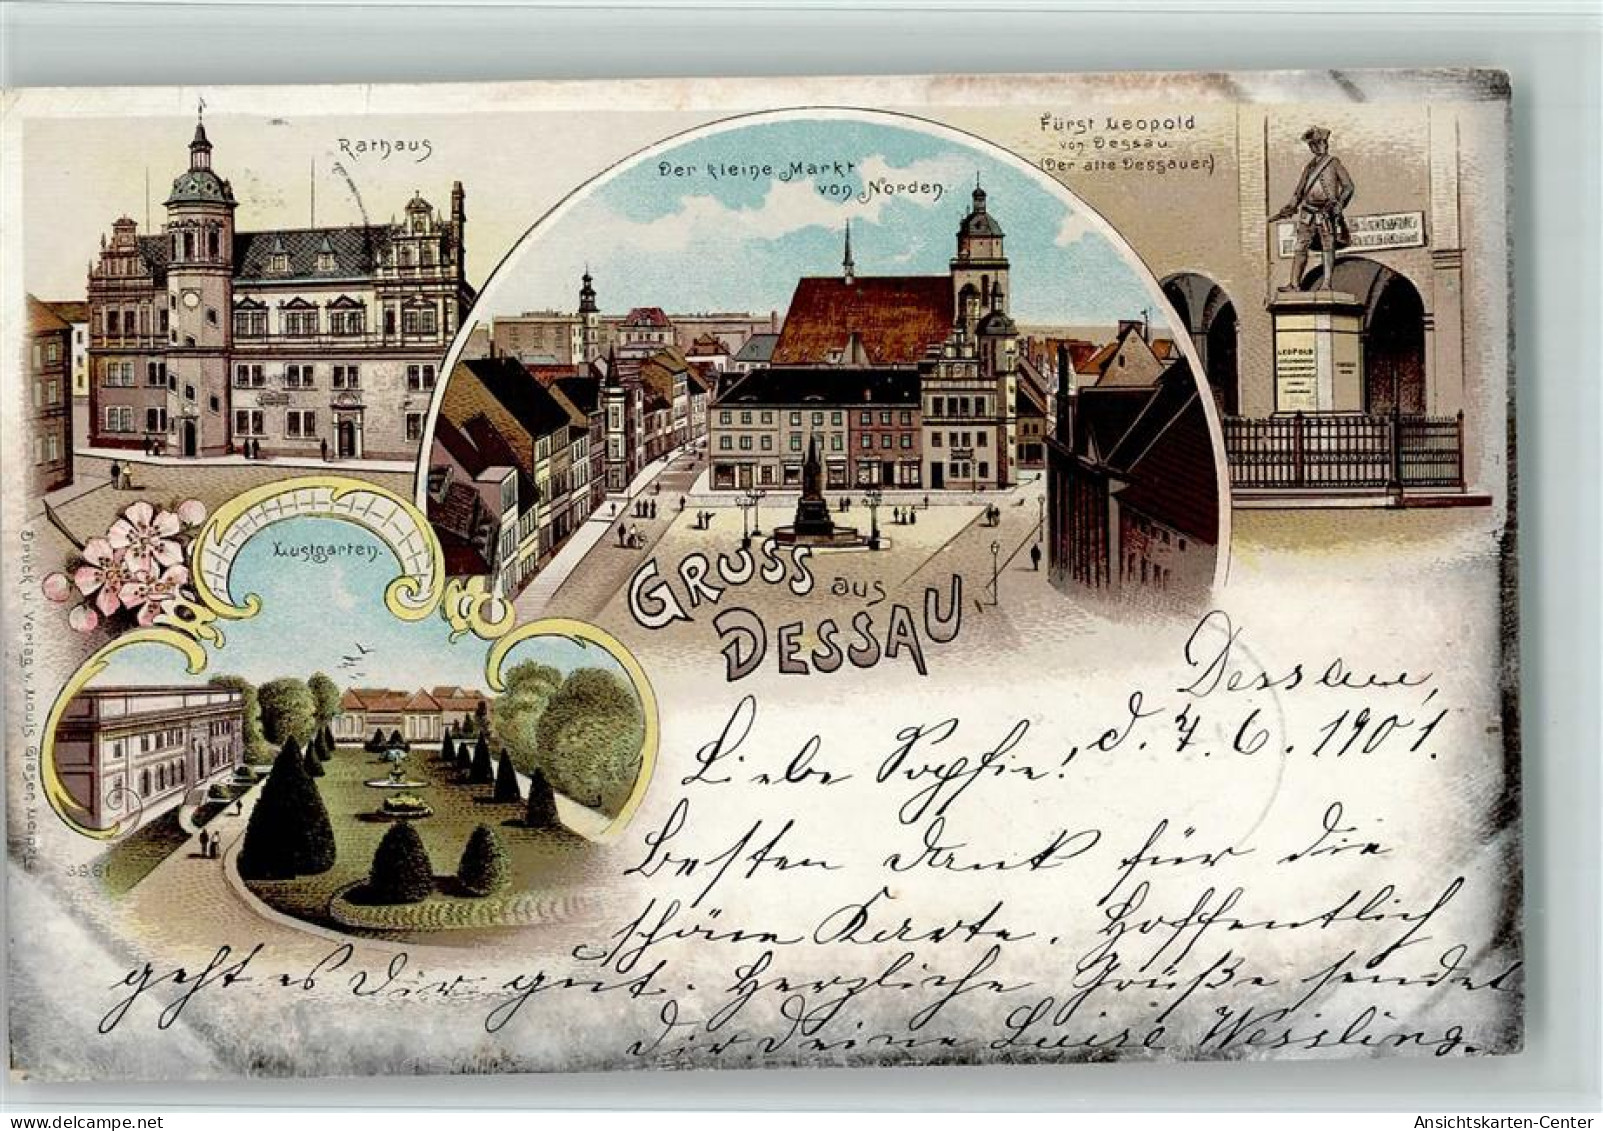 Rathaus
Der kleine Markt
von Norden.
Fürst Leopold
von Dessau.
(Der alte Dessauer)
LEOPOLD
Lustgarten.
GRUSS aus
DESSAU
Druck u. Verlag v. Louis Glaser, Leipzig
3861
Dessau,
d. 4. 6. 1901.
Liebe Sophie!
Besten Dank für die
schöne Karte. Hoffentlich
geht es Dir gut. Herzliche Grüße sendet
Dir Deine Luise Wessling.
Ansichtskarten-Center